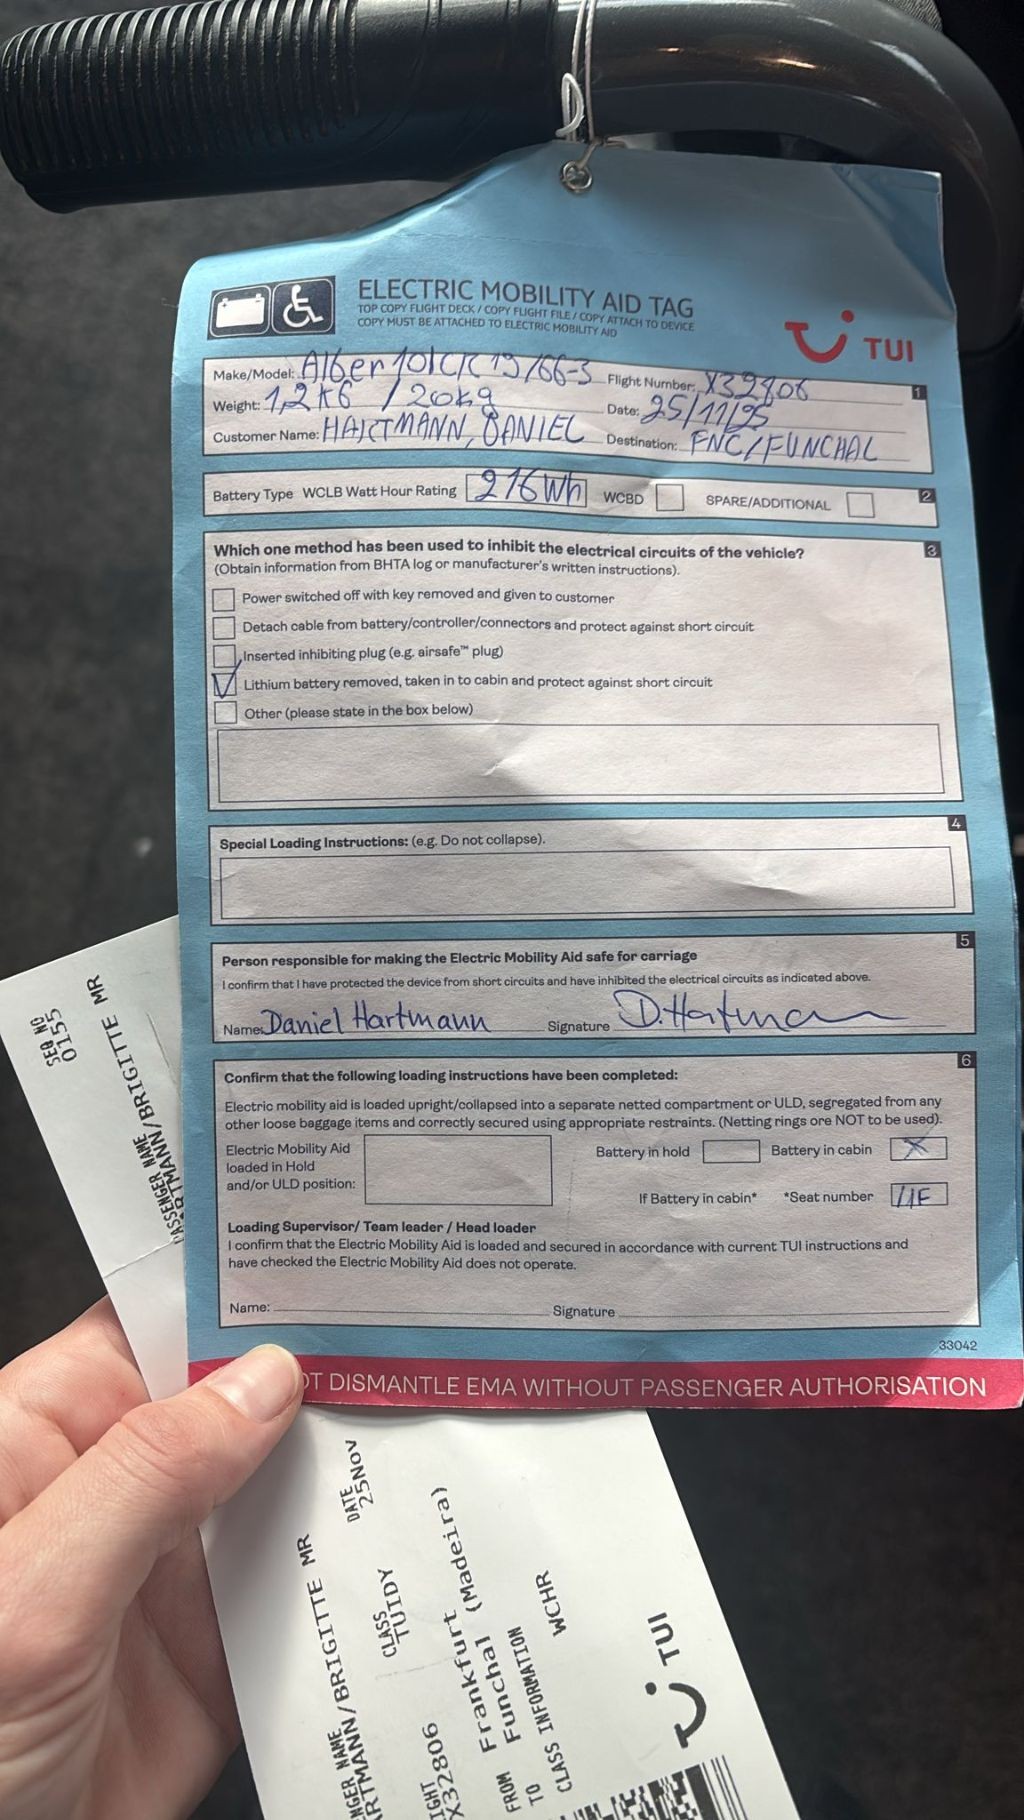 ELECTRIC MOBILITY AID TAG
TOP COPY FLIGHT DECK / COPY FLIGHT FILE / COPY ATTACH TO DEVICE
COPY MUST BE ATTACHED TO ELECTRIC MOBILITY AID
TUI
Make/Model: Alber Flight Number: X32806 1
Weight: 1,2 KG / 20kg Date: 25/11/25
Customer Name: HARTMANN, DANIEL Destination: FNC/FUNCHAL
Battery Type WCLB Watt Hour Rating 216Wh WCBD SPARE/ADDITIONAL 2
Which one method has been used to inhibit the electrical circuits of the vehicle? 3
(Obtain information from BHTA log or manufacturer's written instructions).
Power switched off with key removed and given to customer
Detach cable from battery/controller/connectors and protect against short circuit
Inserted inhibiting plug (e.g. airsafe™ plug)
Lithium battery removed, taken in to cabin and protect against short circuit
Other (please state in the box below)
4
Special Loading Instructions: (e.g. Do not collapse).
5
Person responsible for making the Electric Mobility Aid safe for carriage
I confirm that I have protected the device from short circuits and have inhibited the electrical circuits as indicated above.
Name: Daniel Hartmann Signature D. Hartmann
6
Confirm that the following loading instructions have been completed:
Electric mobility aid is loaded upright/collapsed into a separate netted compartment or ULD, segregated from any
other loose baggage items and correctly secured using appropriate restraints. (Netting rings are NOT to be used).
Electric Mobility Aid Battery in hold Battery in cabin X
loaded in Hold
and/or ULD position: If Battery in cabin* *Seat number 11F
Loading Supervisor/ Team leader / Head loader
I confirm that the Electric Mobility Aid is loaded and secured in accordance with current TUI instructions and
have checked the Electric Mobility Aid does not operate.
Name: Signature
33042
OT DISMANTLE EMA WITHOUT PASSENGER AUTHORISATION
SEQ NO
0155
PASSENGER NAME
RTMANN/BRIGITTE MR
NGER NAME
RTMANN/BRIGITTE MR
IGHT CLASS DATE
X32806 TUIDY 25NOV
FROM Frankfurt
TO Funchal (Madeira)
CLASS INFORMATION
WCHR
TUI